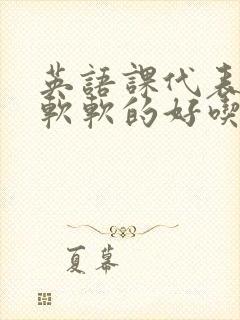 英語課代表
軟軟的好喫
夏幕